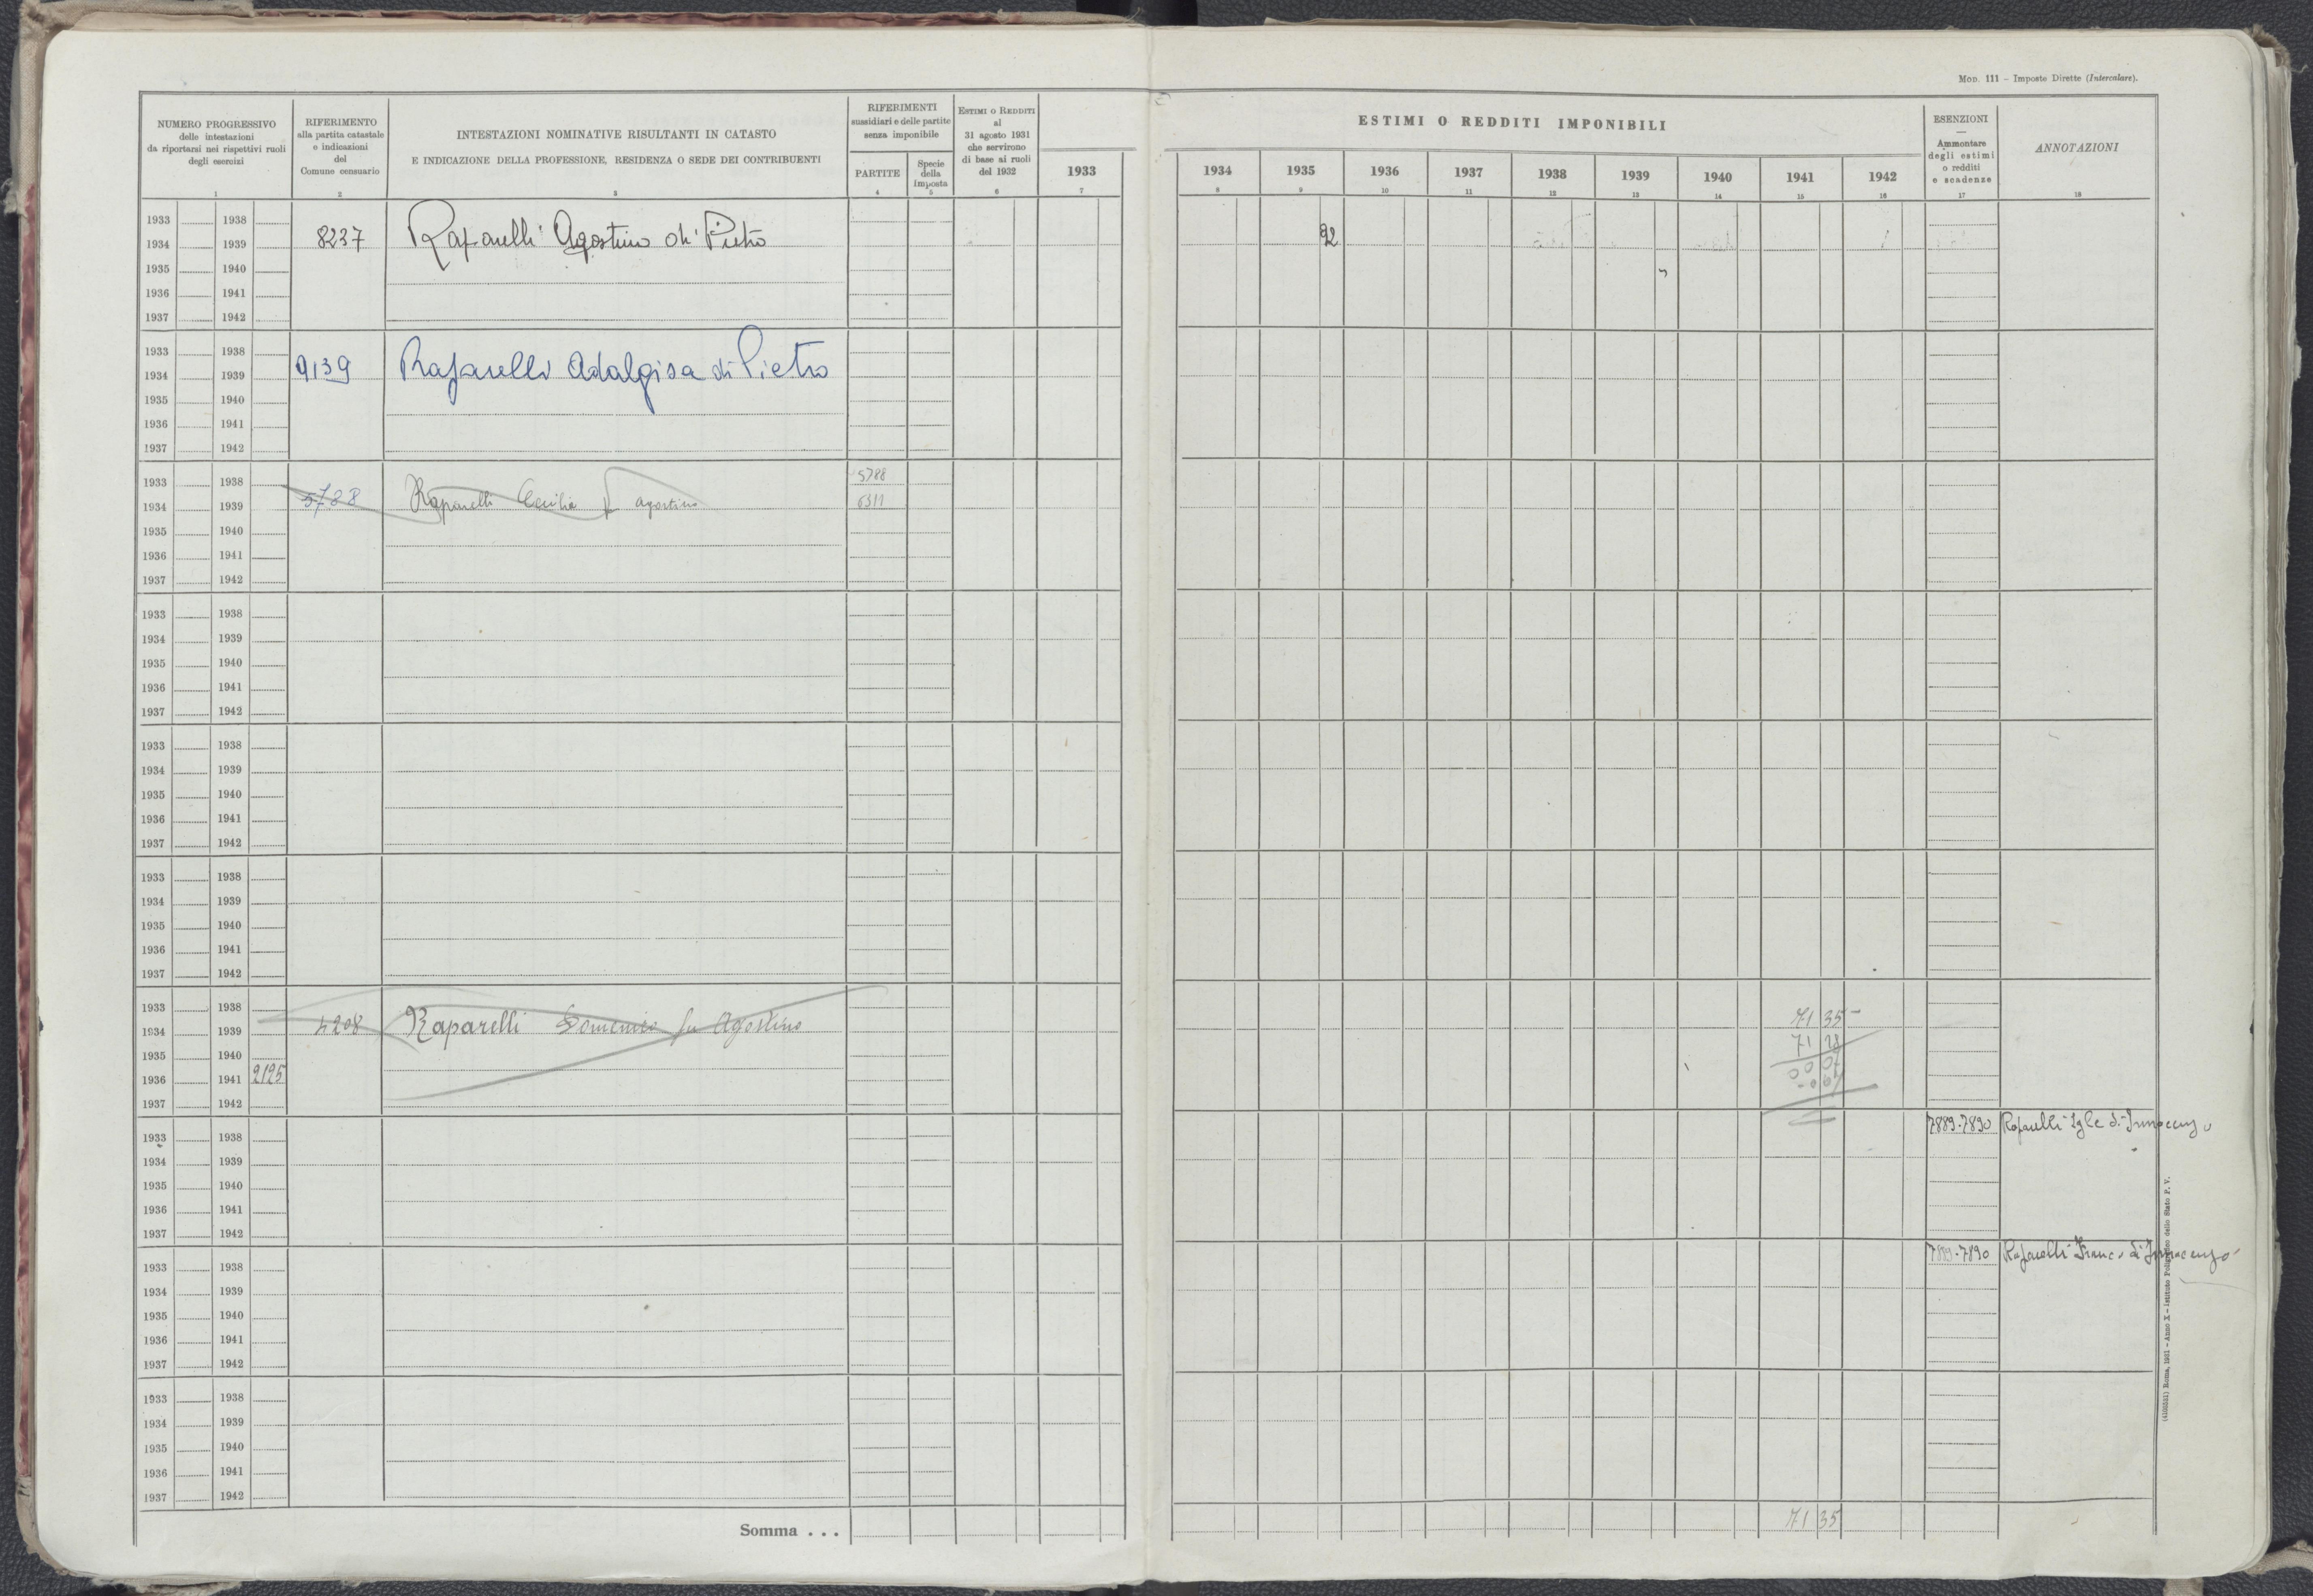 Mod. 111 – Imposte Dirette (Intercalare).
NUMERO PROGRESSIVO
delle intestazioni
da riportarsi nei rispettivi ruoli
degli esercizi
1
RIFERIMENTO
alla partita catastale
e indicazioni
del
Comune censuario
2
INTESTAZIONI NOMINATIVE RISULTANTI IN CATASTO
E INDICAZIONE DELLA PROFESSIONE, RESIDENZA O SEDE DEI CONTRIBUENTI
3
RIFERIMENTI
sussidiari e delle partite
senza imponibile
PARTITE
4
Specie
della
imposta
5
Estimi o Redditi
al
31 agosto 1931
che servirono
di base ai ruoli
del 1932
6
1933
7
ESTIMI O REDDITI IMPONIBILI
1934
8
1935
9
1936
10
1937
11
1938
12
1939
13
1940
14
1941
15
1942
16
ESENZIONI
—
Ammontare
degli estimi
o redditi
e scadenze
17
ANNOTAZIONI
18
1933 1938
1934 1939 8237 Raparelli Agostino di Pietro 92
1935 1940
1936 1941
1937 1942
1933 1938
1934 1939 9139 Raparelli Adalgisa di Pietro
1935 1940
1936 1941
1937 1942
1933 1938 5788
1934 1939 5788 Raparelli Cecilia fu agostino 6311
1935 1940
1936 1941
1937 1942
1933 1938
1934 1939
1935 1940
1936 1941
1937 1942
1933 1938
1934 1939
1935 1940
1936 1941
1937 1942
1933 1938
1934 1939
1935 1940
1936 1941
1937 1942
1933 1938
1934 1939 4208 Raparelli Domenico fu Agostino 71 35
1935 1940 71 28
1936 1941 2125 00 07
1937 1942
1933 1938 7889-7890 Raparelli Igle di Innocenzo
1934 1939
1935 1940
1936 1941
1937 1942
1933 1938 7889-7890 Raparelli Franco di Innocenzo
1934 1939
1935 1940
1936 1941
1937 1942
1933 1938
1934 1939
1935 1940
1936 1941
1937 1942
Somma . . . 71 35
(4100351) Roma, 1931 – Anno X – Istituto Poligrafico dello Stato P. V.